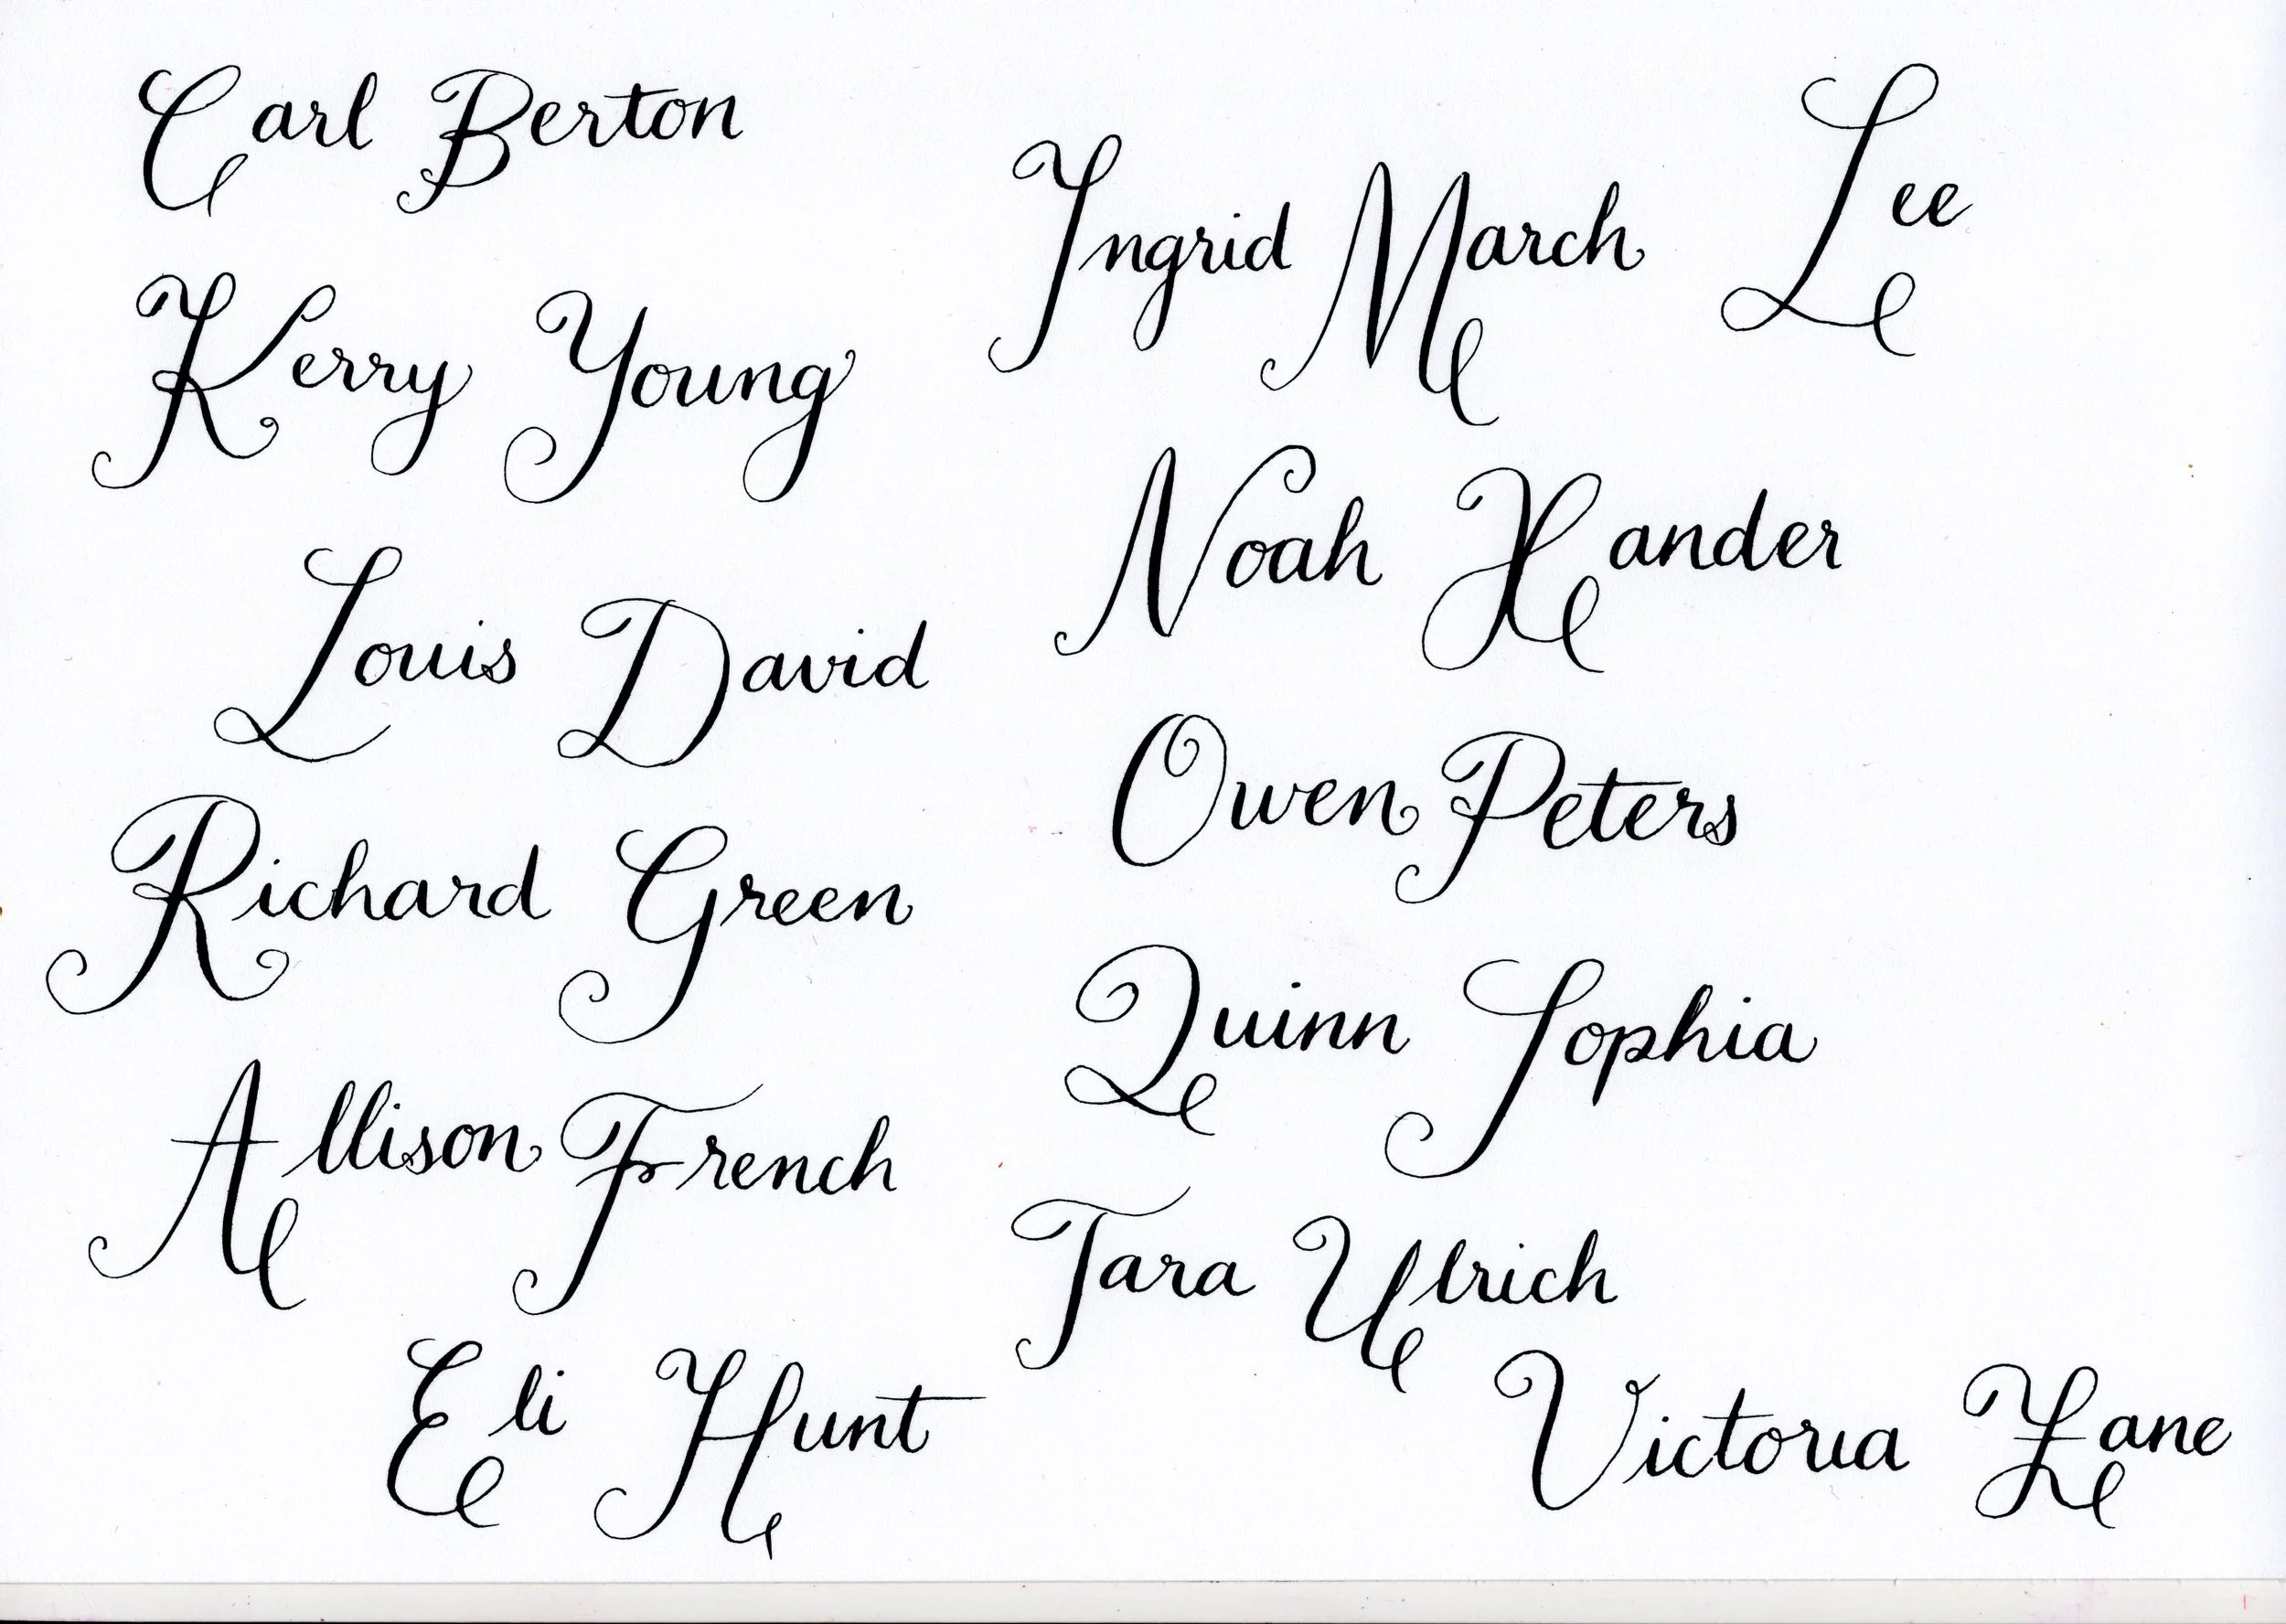 Carl Berton
Kerry Young
Louis David
Richard Green
Allison French
Eli Hunt
Ingrid March Lee
Noah Xander
Owen Peters
Quinn Sophia
Tara Ulrich
Victoria Zane